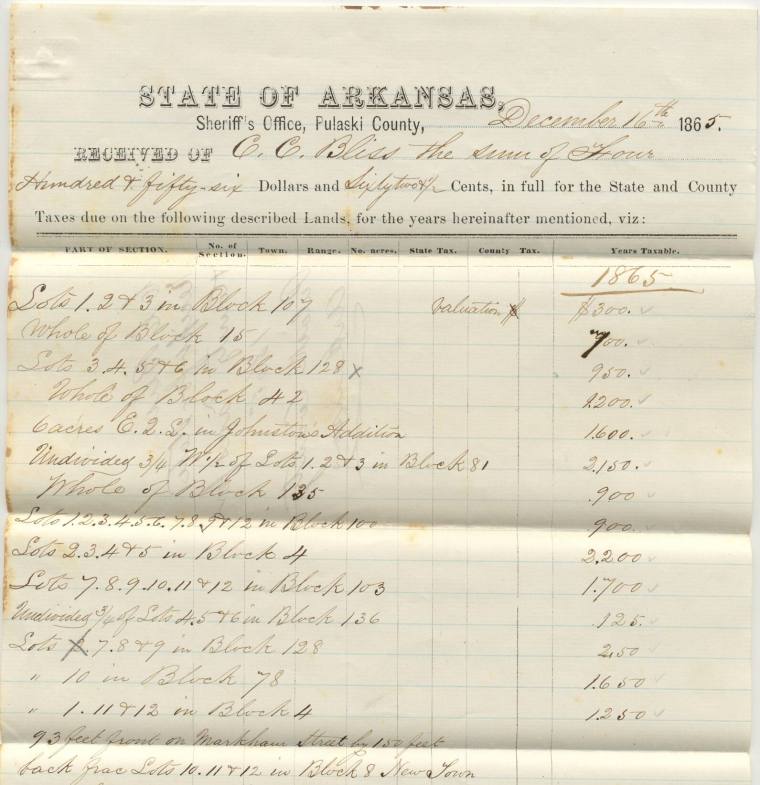 STATE OF ARKANSAS,
Sheriff's Office, Pulaski County, December 16th 1865.
RECEIVED OF C. C. Bliss the sum of Four
Hundred & fifty-six Dollars and Sixtytwo 1/2 Cents, in full for the State and County
Taxes due on the following described Lands, for the years hereinafter mentioned, viz:
PART OF SECTION. No. of Section. Town. Range. No. acres. State Tax. County Tax. Years Taxable.
1865
Lots 1. 2 & 3 in Block 107 valuation $ $300.
Whole of Block 15 700.
Lots 3. 4. 5 & 6 in Block 128 x 950.
Whole of Block 42 1200.
6 acres E. 2. L. in Johnston's Addition 1.600.
Undivided 3/4 W. 1/2 of Lots 1. 2 & 3 in Block 81 2.150.
Whole of Block 135 .900
Lots 1. 2. 3. 4. 5. 6. 7. 8. & 12 in Block 100 900.
Lots 2. 3. 4 & 5 in Block 4 2.200
Lots 7. 8. 9. 10. 11 & 12 in Block 103 1.700
Undivided 3/4 of Lots 4. 5 & 6 in Block 136 .125.
Lots 7. 8 & 9 in Block 128 250
" 10 in Block 78 1.650
" 1. 11 & 12 in Block 4 1.250
93 feet front on Markham Street by 150 feet
back frac Lots 10. 11 & 12 in Block 8 New Town